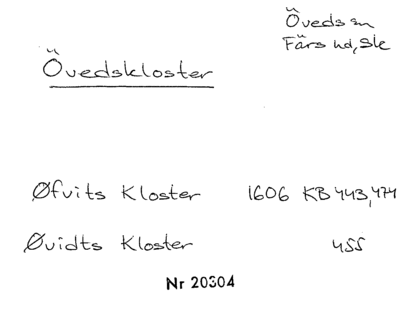 Öveds sn
Färs hd, Sk
Övedskloster
Øfvits Kloster 1606 KB 443, 474
Øvidts Kloster 455
Nr 20304